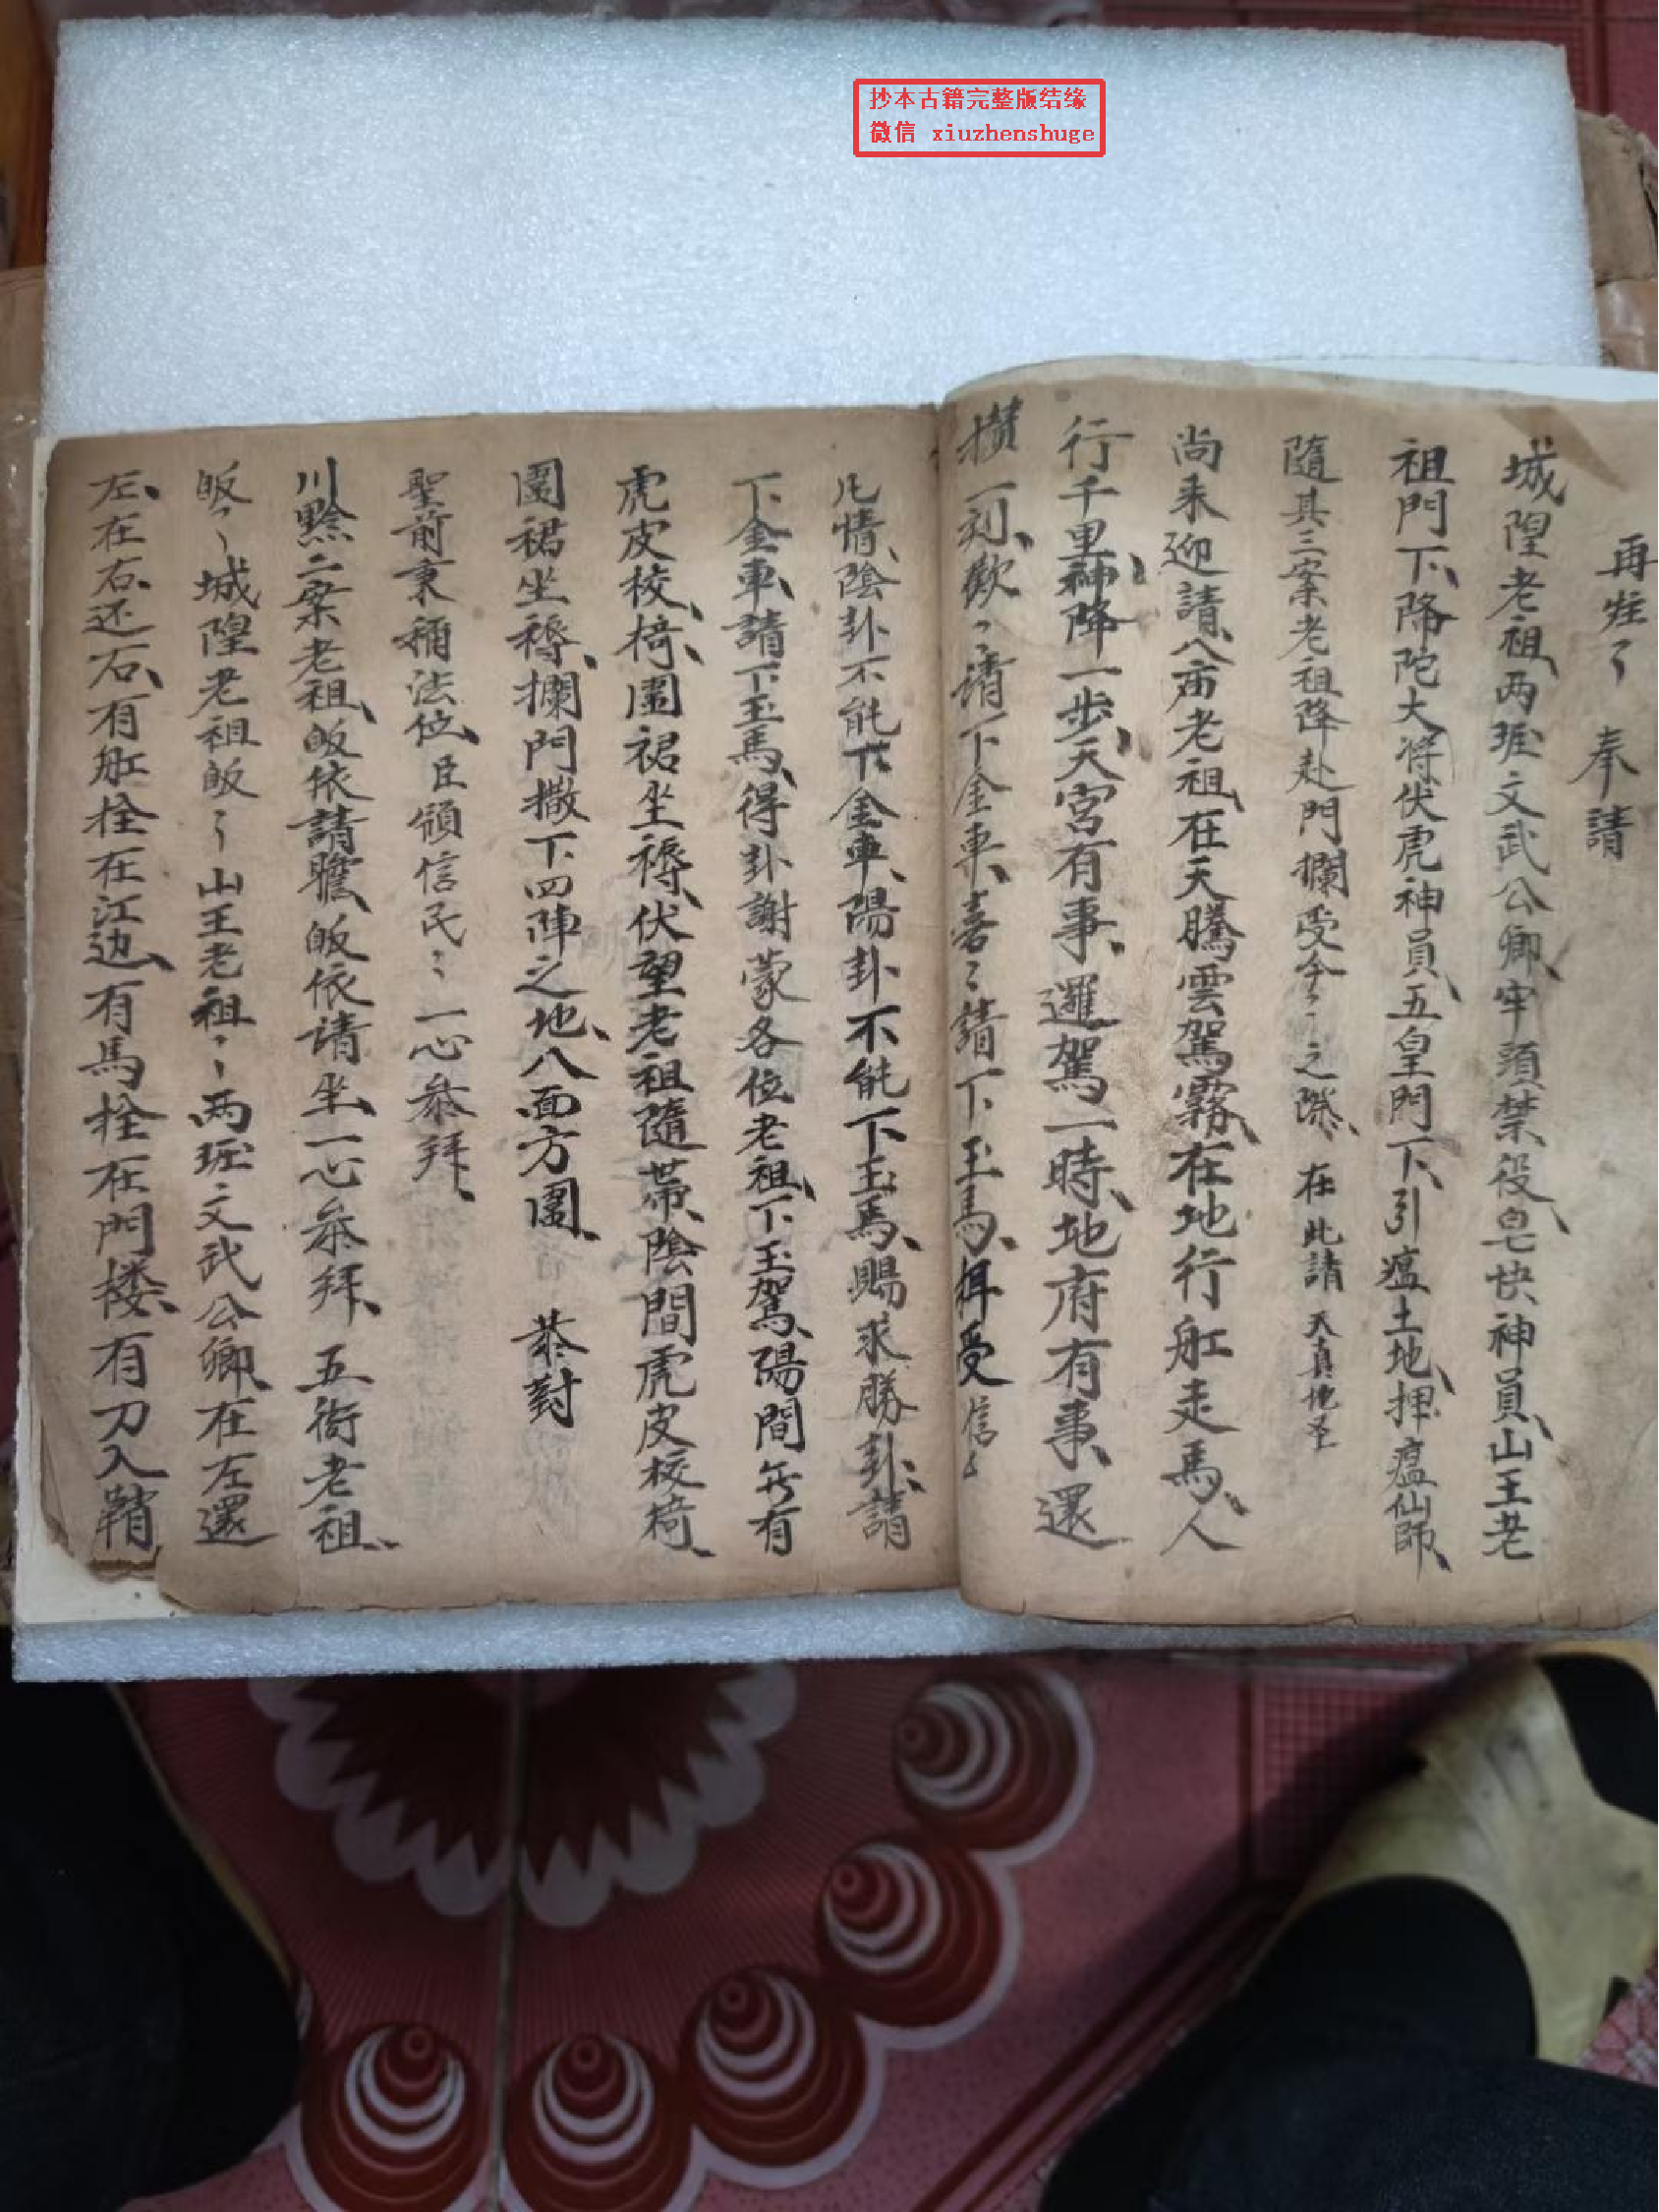 抄本古籍完整版结缘
微信 xiuzhenshuge
再 奉請
城隍老祖、两班文武公卿、牢頭禁役、皂快神員、山王老
祖門下、降陀大将伏虎神員、五皇門下、引瘟土地、押瘟仙師、
隨其三案老祖降赴門攔受今〻之際、在此請 天真地圣
尚来迎請、八庙老祖、在天騰雲駕霧、在地行舡走馬、人
行千里、神降一步、天宮有事、還駕一時、地府有事、還
攢一刻、歡〻請下金車、喜〻請下玉馬、 受信〻
凡情、陰卦不能下金車、陽卦不能下玉馬、賜求勝卦、請
下金車、請下玉馬、得卦謝蒙各位老祖、下玉駕、陽間 有
虎皮校椅、圍裙坐褥、伏望老祖隨帶、陰間虎皮校椅、
圍裙坐褥、攔門撒下四陣之地、八面方圍、 恭對
聖前秉稱法位、臣領信民〻一心叅拜、
川黔二案老祖、皈依請 、皈依请坐、一心叅拜、五衙老祖、
皈〻城隍老祖皈〻山王老祖〻两班文武公卿、在左還
左、在右还右、有舡拴在江边、有馬拴在門楼、有刀入鞘